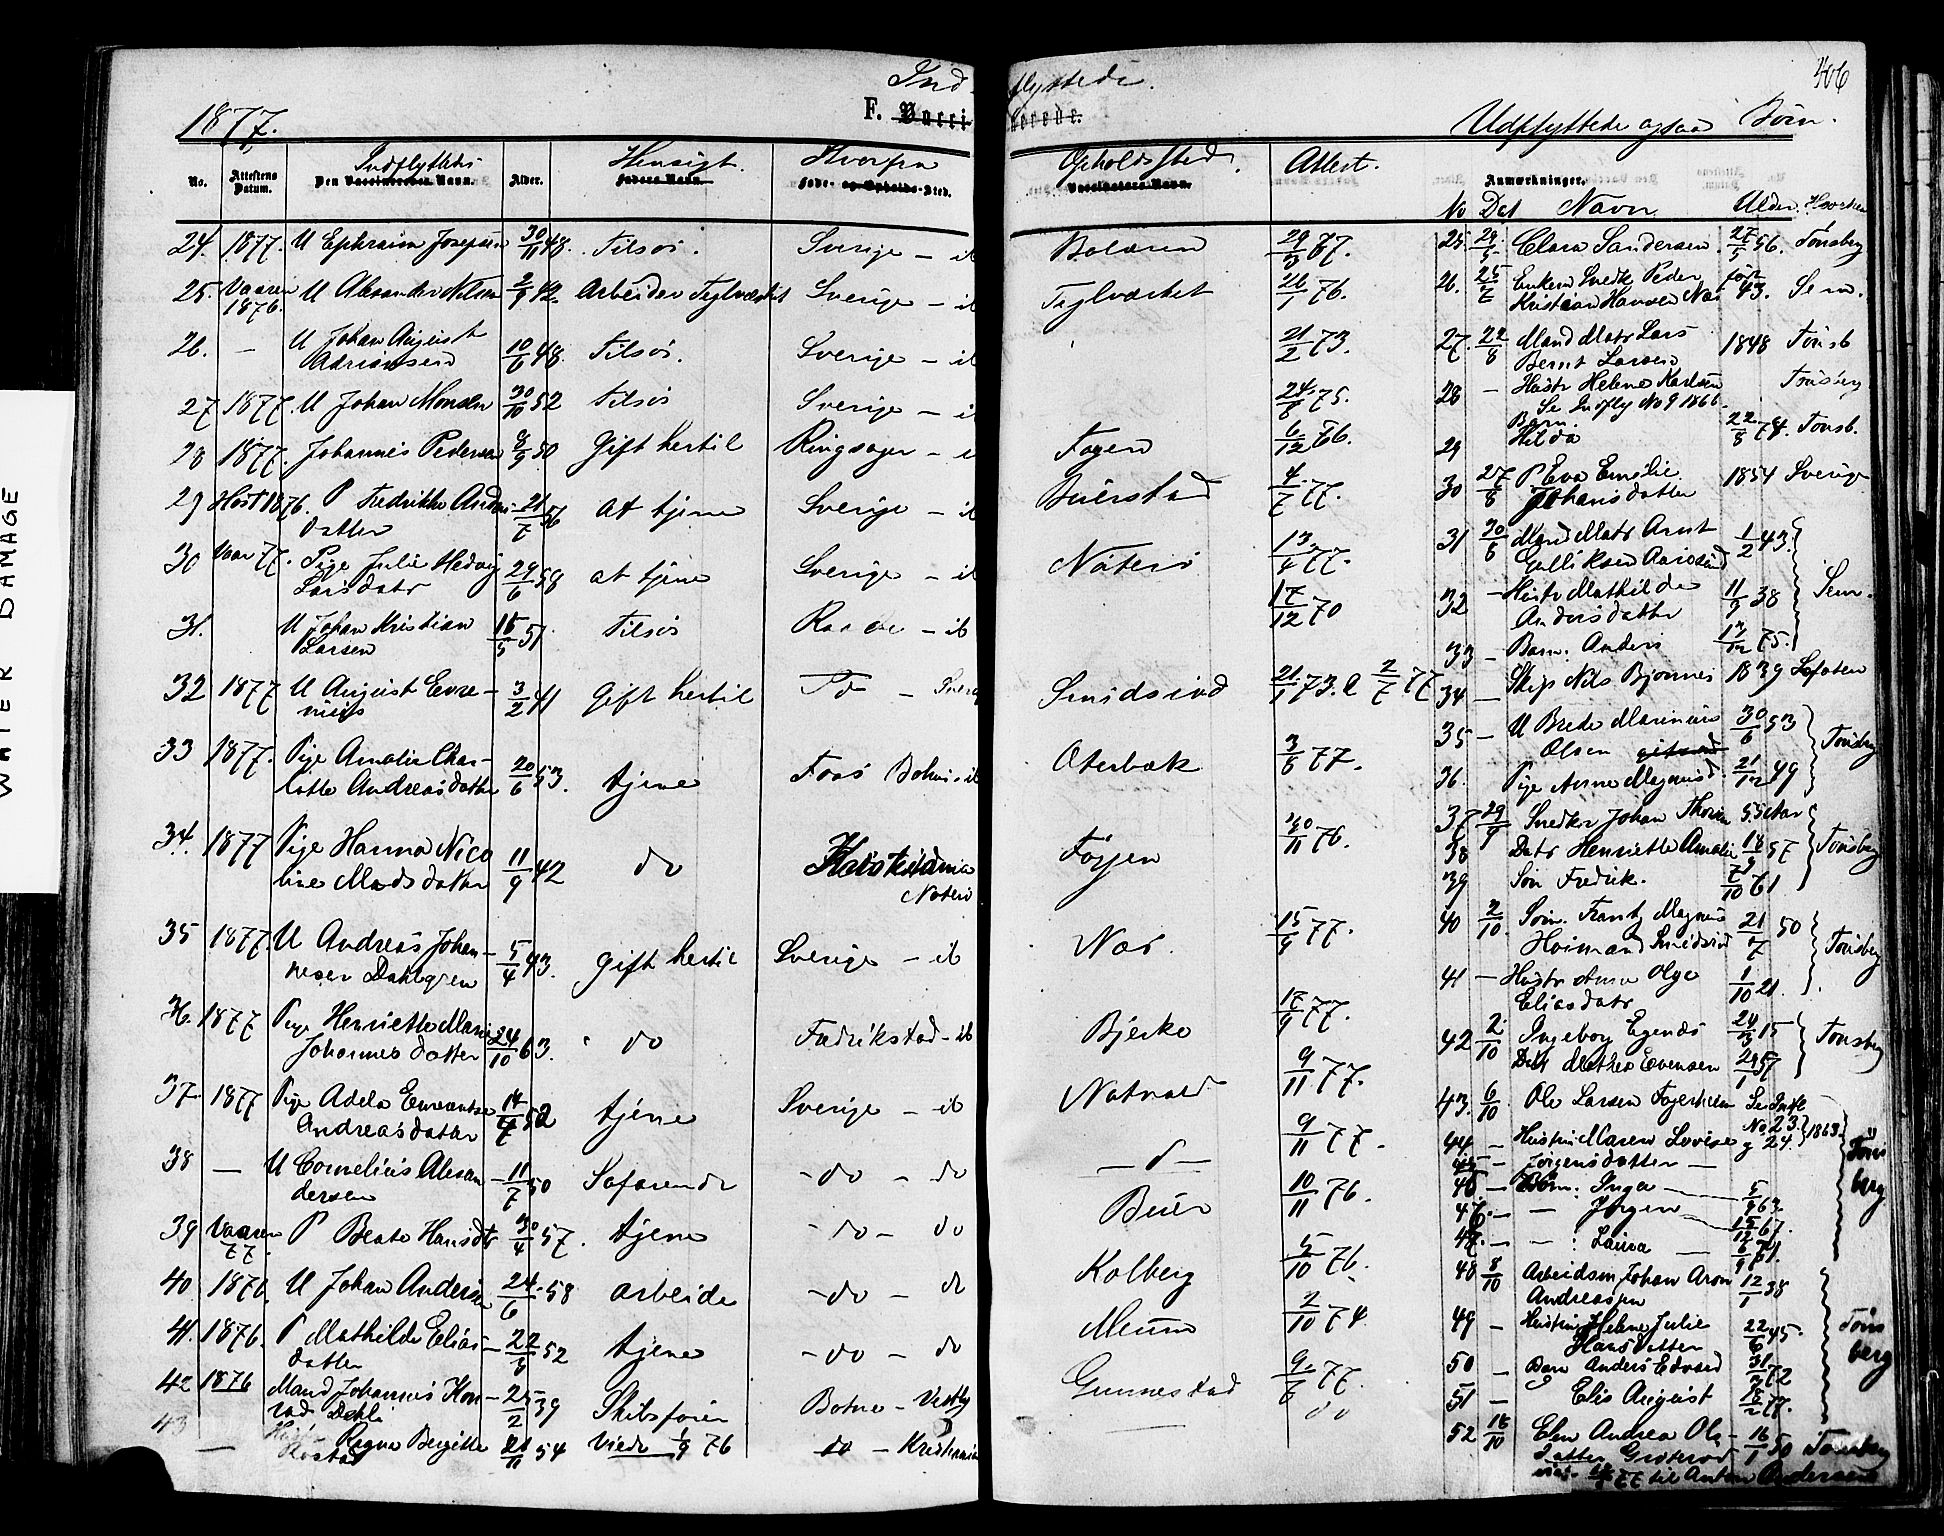 WATER DAMAGE
406
1877.
Indflyttede.
F. Vaccinerede.
Udflyttede ogsaa Børn.
No. Attestens Datum. Indflyttets Den Vaccineredes Navn. Alder. Hensigt. Faders Navn. Hvorfra Føde- og Opholds-Sted. Opholdssted. Vaccinators Navn. Attest. Anmærkninger.
No Dat Navn Alder. Hvorhen
24. 1877. U Ephraim Josepsen 30/11 48. Tilsøs. Sverige - ib Bolæren 29/3 67.
25. Vaaren 1876. U Alexander Nilsen 2/9 42. Arbeider Teglværket Sverige - ib Teglværket 26/1 76.
26. - U Johan August Adriansen 10/6 48. Tilsøs. Sverige - ib 21/2 73.
27 1877. U Johan Monsen 30/10 52 Tilsøs Sverige - ib 24/8 75.
28 1877. Johannes Pedersen 8/9 50 Gift hertil Ringsager - ib Fogen 6/12 76.
29 Høst 1876. P Fredrikke Andreasdatter 21/7 56 at tjene Sverige - ib Buerstad 4/7 77.
30 Vaar 77. Pige Julie Hedvig Larsdatr 29/6 58 at tjene Sverige - ib Nøterø 13/4 77.
31. U Johan Kristian Larsen 15/5 51 Tilsøs Raade - ib 17/12 70
32 1877 U August Evrenius 3/2 41 Gift hertil Do - Sverig Smidsrød 21/1 73. & 2/7 77
33 1877. Pige Amalie Charlotte Andreasdatter 20/6 53. tjene Foss Bohus ib Oterbæk 3/8 77.
34. 1877 Pige Hanna Nicoline Madsdatter 11/9 42 do Kristiania Nøterø Føyen 30/11 76.
35 1877. U Andreas Johannesen Dahlgren 5/4 43. gift hertil Sverige - ib Næs. 15/9 77.
36. 1877 Pige Henriette Marie Johannesdatter 24/10 63. do Fredrikstad - ib Bjerke 17/9 77.
37. 1877 Pige Adela Emerentse Andreasdatter 14/7 52 tjene Sverige - ib Nøtnæs 9/11 77.
38 - U Cornelius Alexandersen 11/7 50 Søfarende - do - do - d - 9/11 77.
39 Vaaren 77. P Beate Hansdtr 30/4 57. tjene - do - do Buer 10/11 76.
40 1876. U Johan Andersen 24/6 58 arbeide - do - do Kolberg 5/10 76.
41. 1876. P Mathilde Eliasdatter 22/8 52 tjene - do - do Meum 2/10 74.
42 1876 Mand Johannes Konrad Dehli 25/2 39 Skibsfører Botne - Vestby Gunnestad 9/7 77.
43 - Hustr Ragna Bergitte Rostad 21/11 54 Viede 1/9 76 do - Kristiania do
25. 29/5. Clara Sandersen. 27/5 56. Tønsberg
26. 25/7 Enken Snedk Peder Kristian Hansen Næs født 43. Sem.
27. 22/8 Mand Matr Lars Bernt Larsen 1848 Tønsb
28 - Hustr Helene Karlsen Se Indfly No 9 1866. Tønsberg
29 Barn. Hilda 22/8 74. Tønsb.
30 27/8 P Eva Emelie Johansdatter 1854 Sverige
31 30/8 Mand Matr Arnt Gulliksen Aarøsund 1/2 43.
32 - Hustr Mathilde Andersdatter 11/9 38 Sem.
33 - Barn: Anders 17/12 75.
34 - Skip Nils Bjønnes 1839 Lofoten
35 - U Brede Marinius Olsen 30/6 53
36. Pige Anne Magnusd. 21/12 49 Tønsberg
37 29/9 Snedker Johan Thorsen 55 Aar
38 Datr Henriette Amalie 18/9 57 Tønsberg
39 Søn Fredrik. 7/10 61
40 2/10. Søm. Frantz Magnus Hviman Smidsrød 21/7 50
41 - Hustr Anne Olge Eliasdatr 1/10 21. Tønsberg
42 2/10 Ingeborg Egends 24/3 15
Datr Mathea Evensen 29/1 57 Tønsberg
43. 6/10 Ole Larsen Fagerheim Se Indfl No 23.
44 - Hustru Maren Lovise Jørgensdatter - og 24. 1863.
46 - Børn: Inga - 5/9 63.
47. - - Jørgen - 15/12 67.
- : Laura - 6/9 71.
Tønsberg
48 8/10 Arbeidsm Johan Aron Andreassen 12/1 38
49 - Hustru Helene Julie Hansdatter 22/6 45.
50 - Barn Anders Edvard 31/3 72
51 - Elis August 18/2 77.
Tønsberg
52 18/10 Elen Andrea Olsdatter Grøterød 16/1 50 Tønsberg
viet 77 til Anton Andersen